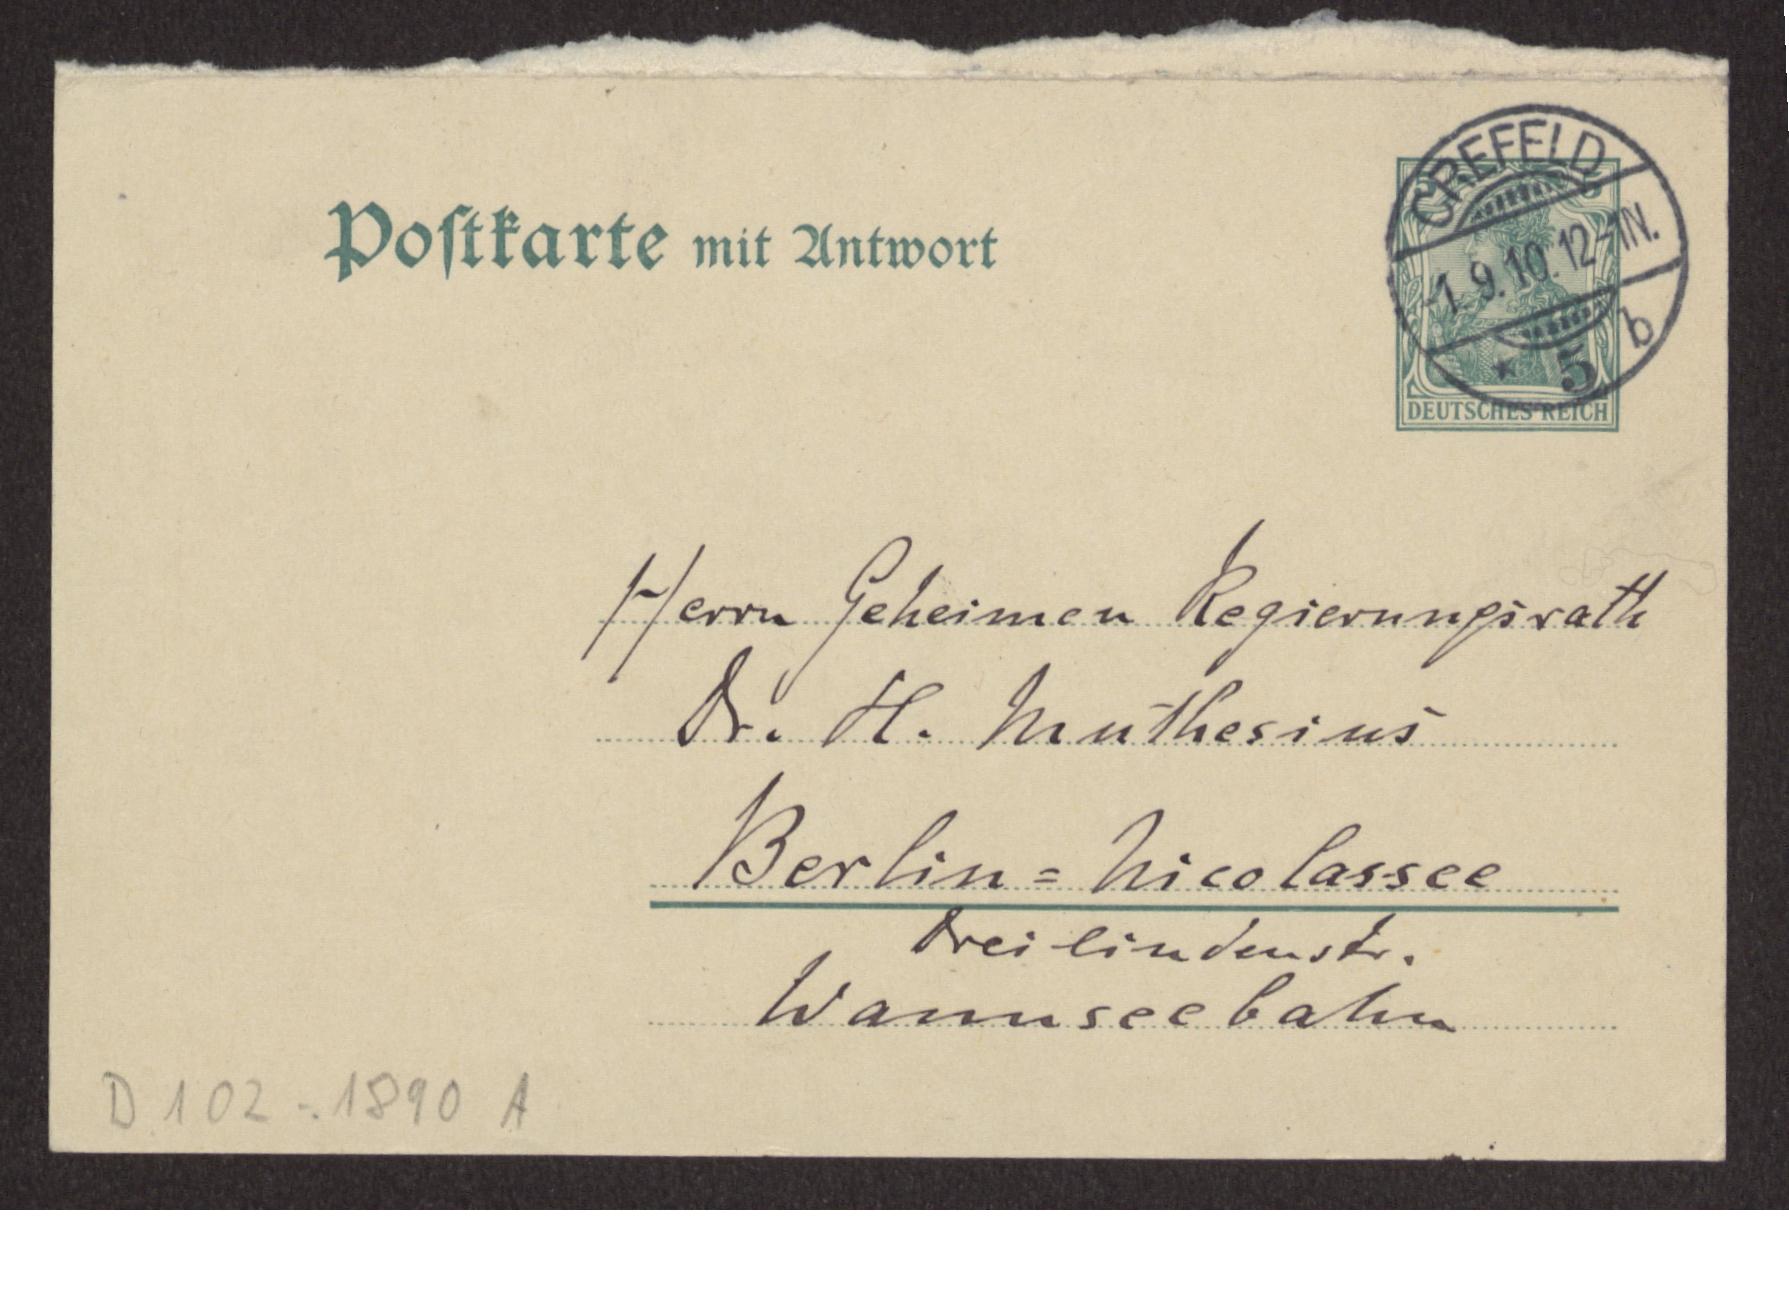 Postkarte mit Antwort
CREFELD
-1.9.10.12-1N.
* 5 b
DEUTSCHES REICH
Herrn Geheimen Regierungsrath
Dr. H. Muthesius
Berlin=Nicolassee
Dreilindenstr.
Wannseebahn
D 102-1890 A